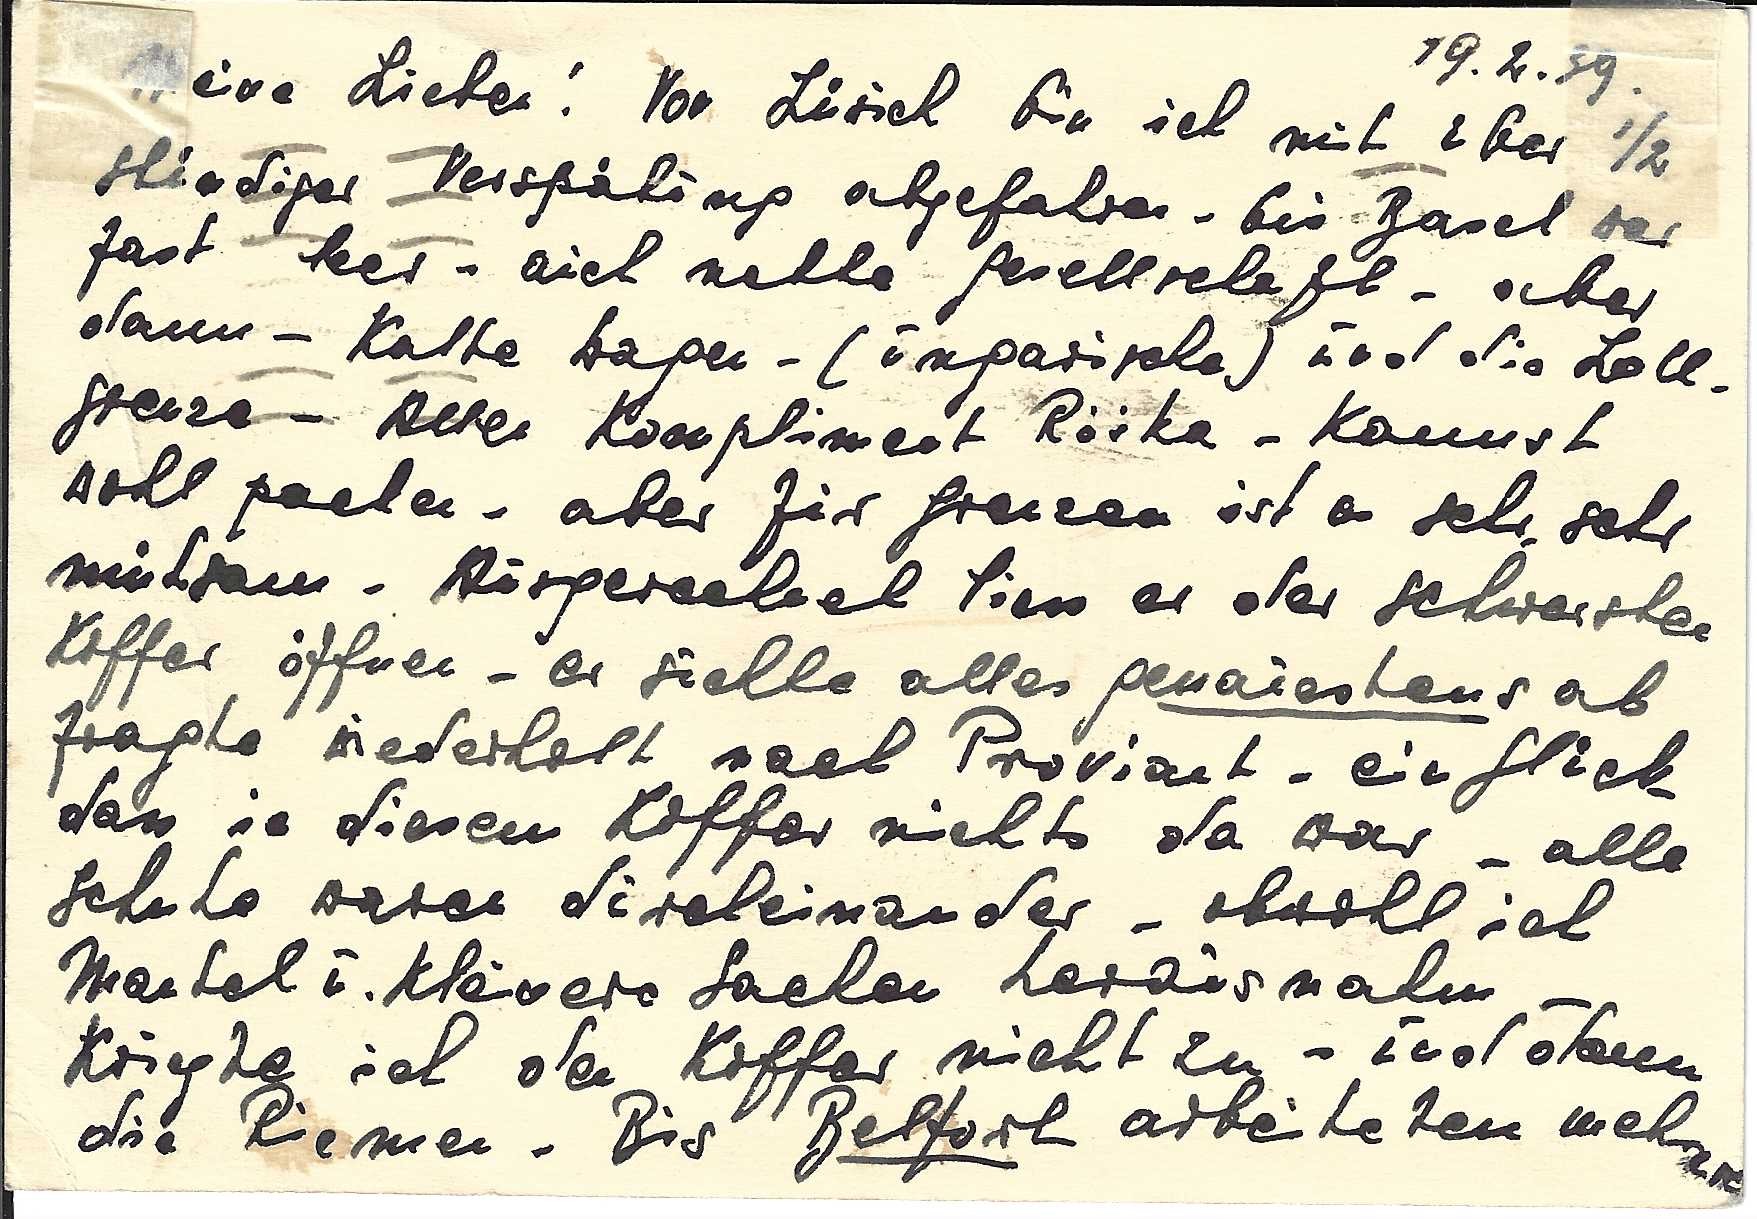 19.2.59.
Meine Lieben! Von Zürich bin ich mit über 1/2
stündiger Verspätung abgefahren - bis Basel war
fast leer - auch nette Gesellschaft - aber
dann - Kalte Wagen - (ungarische) und die Zoll-
grenze - Allen Kompliment Röska - Kannst
wohl packen - aber für Grenzen ist es sehr, sehr
mühsam - Ausgerechnet liess er den schwersten
Koffer öffnen - er suchte alles genauestens ab
fragte wiederholt nach Proviant - ein Glück
dass in diesem Koffer nichts da war - alle
Schuhe waren durcheinander - obwohl ich
Mantel u. kleinere Sachen herausnahm -
Kriegte ich den Koffer nicht zu - und dann
die Riemen - Bis Belfort arbeiteten mehrere